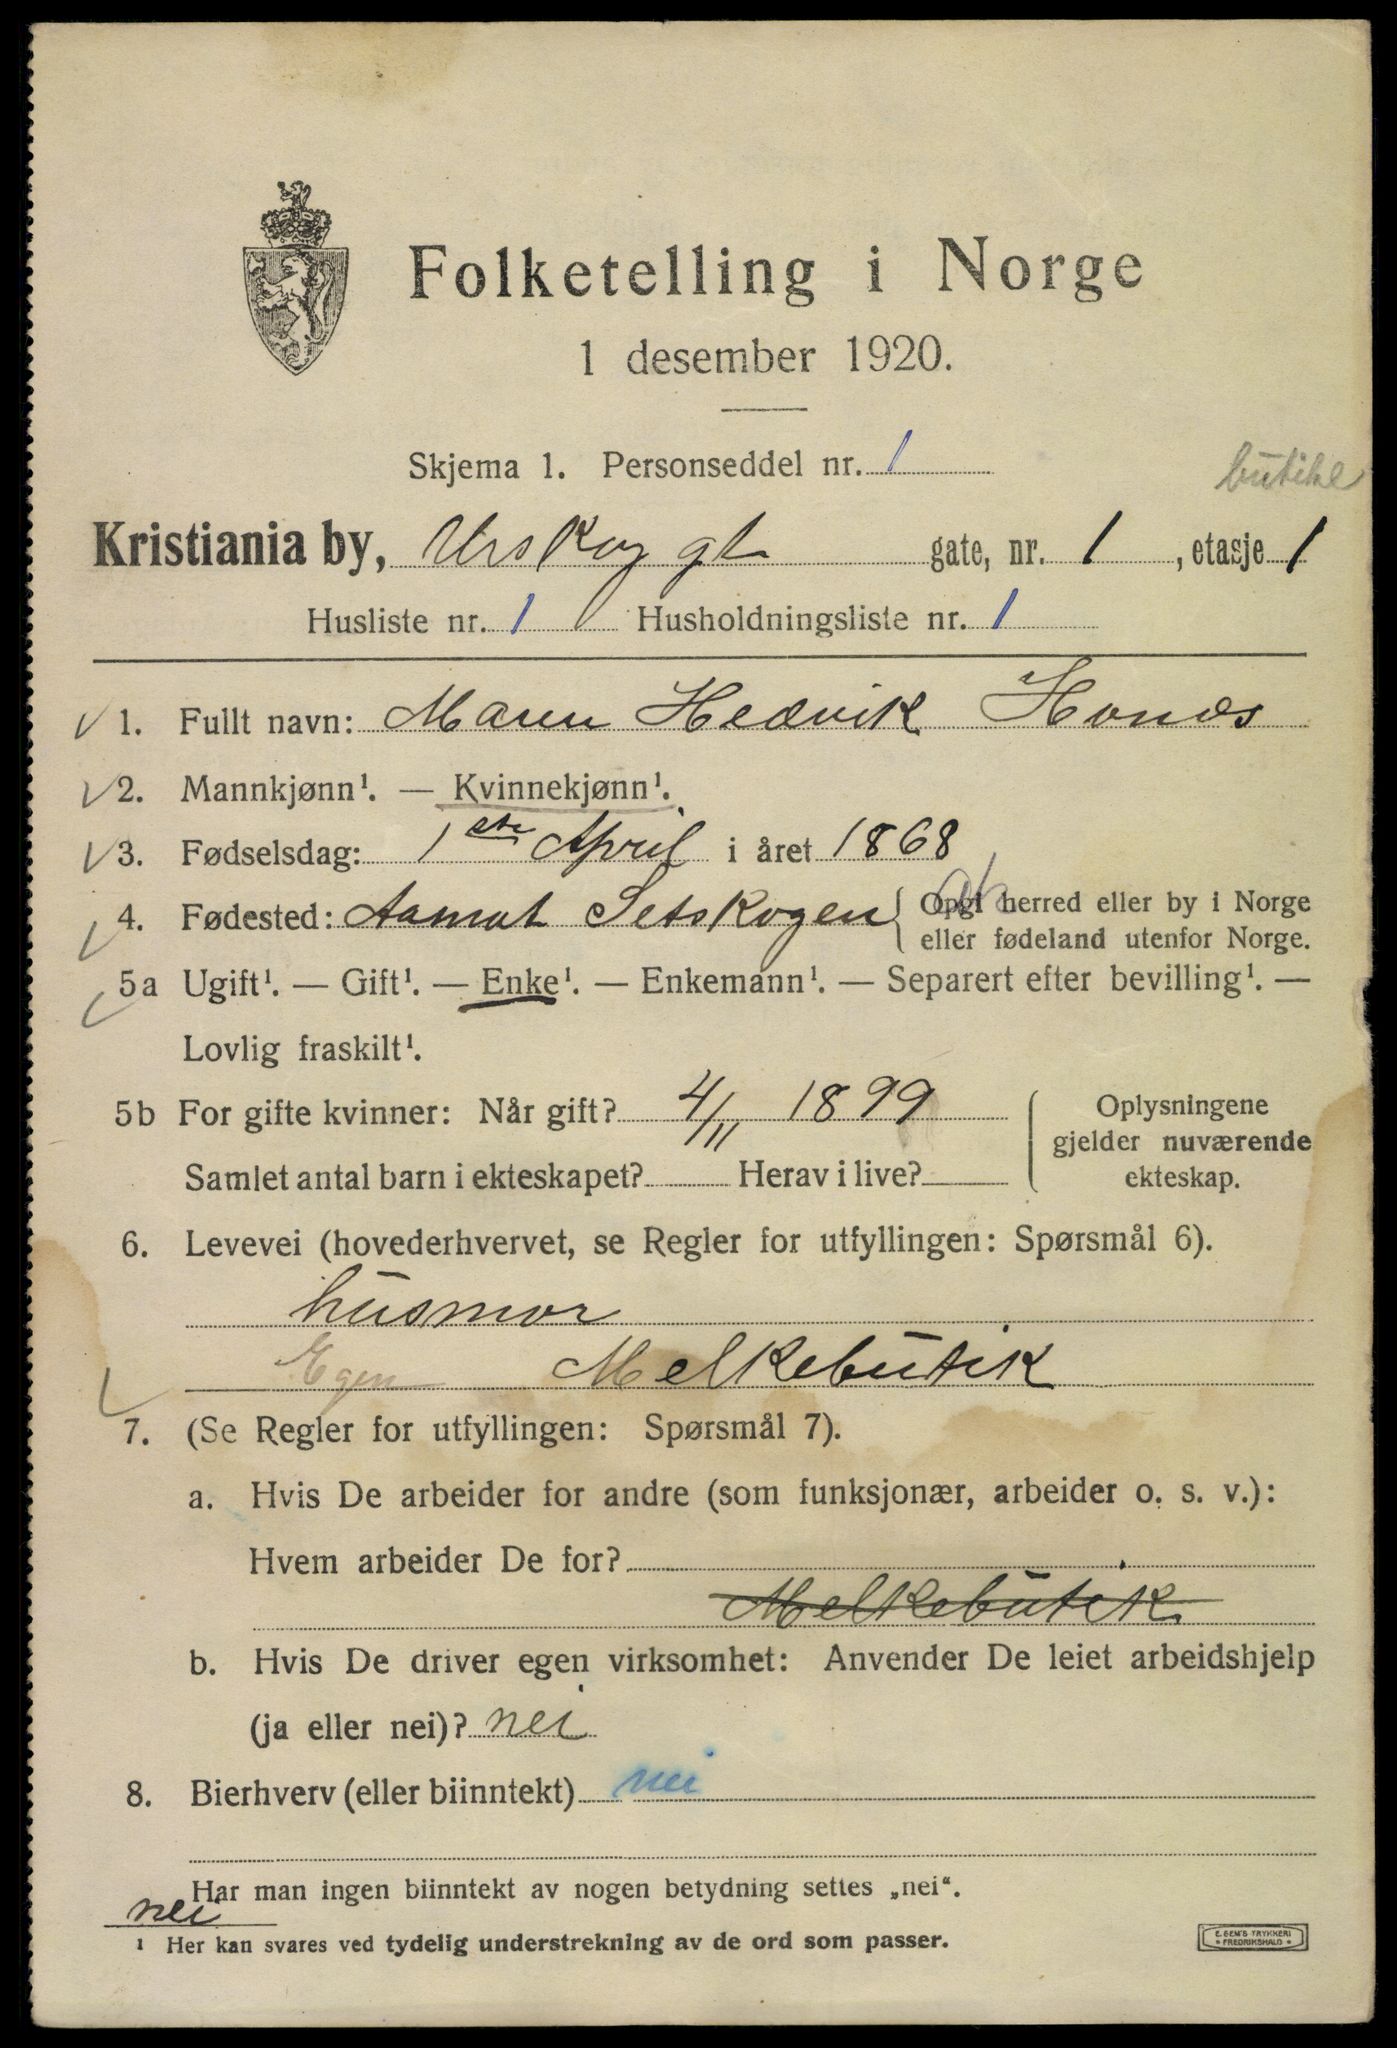 Folketelling i Norge
1 desember 1920.
Skjema 1. Personseddel nr. 1
butikk
Kristiania by, Urskog gt gate, nr. 1, etasje 1
Husliste nr. 1 Husholdningsliste nr. 1
1. Fullt navn: Maren Hedvik Honæs
2. Mannkjønn¹. — Kvinnekjønn¹.
3. Fødselsdag: 1ste April i året 1868
4. Fødested: Aamot Setskogen { Opgi herred eller by i Norge
eller fødeland utenfor Norge.
5a Ugift¹. — Gift¹. — Enke¹. — Enkemann¹. — Separert efter bevilling¹. —
Lovlig fraskilt¹.
5b For gifte kvinner: Når gift? 4/11 1899
Samlet antal barn i ekteskapet? Herav i live?
{ Oplysningene
gjelder nuværende
ekteskap.
6. Levevei (hovederhvervet, se Regler for utfyllingen: Spørsmål 6).
husmor
Egen Melkebutik
7. (Se Regler for utfyllingen: Spørsmål 7).
a. Hvis De arbeider for andre (som funksjonær, arbeider o. s. v.):
Hvem arbeider De for?
Melkebutik
b. Hvis De driver egen virksomhet: Anvender De leiet arbeidshjelp
(ja eller nei)? nei
8. Bierhverv (eller biinntekt) nei
Har man ingen biinntekt av nogen betydning settes „nei“.
nei
¹ Her kan svares ved tydelig understrekning av de ord som passer.
E. SEM'S TRYKKERI
• FREDRIKSHALD •